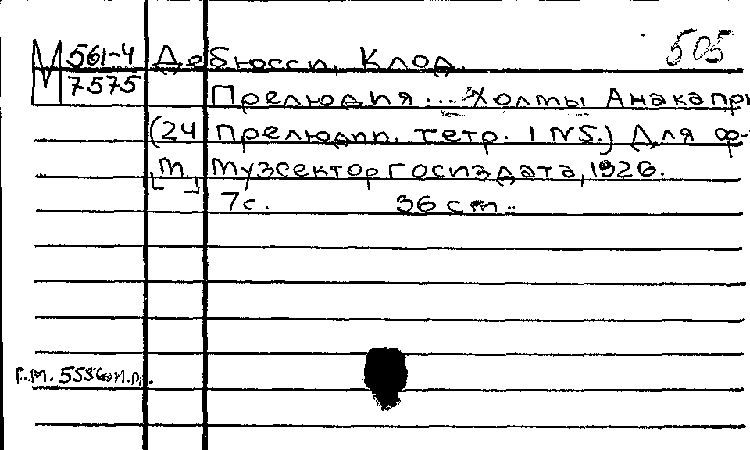 М 561-4 Дебюсси, Клод. 505
7575
Прелюдия ... Холмы Анакапри
(24 прелюдии, тетр. 1 №5.) Для ф-
[м] Музсектор Госиздата, 1926.
7 с. 36 см.
Г.М.